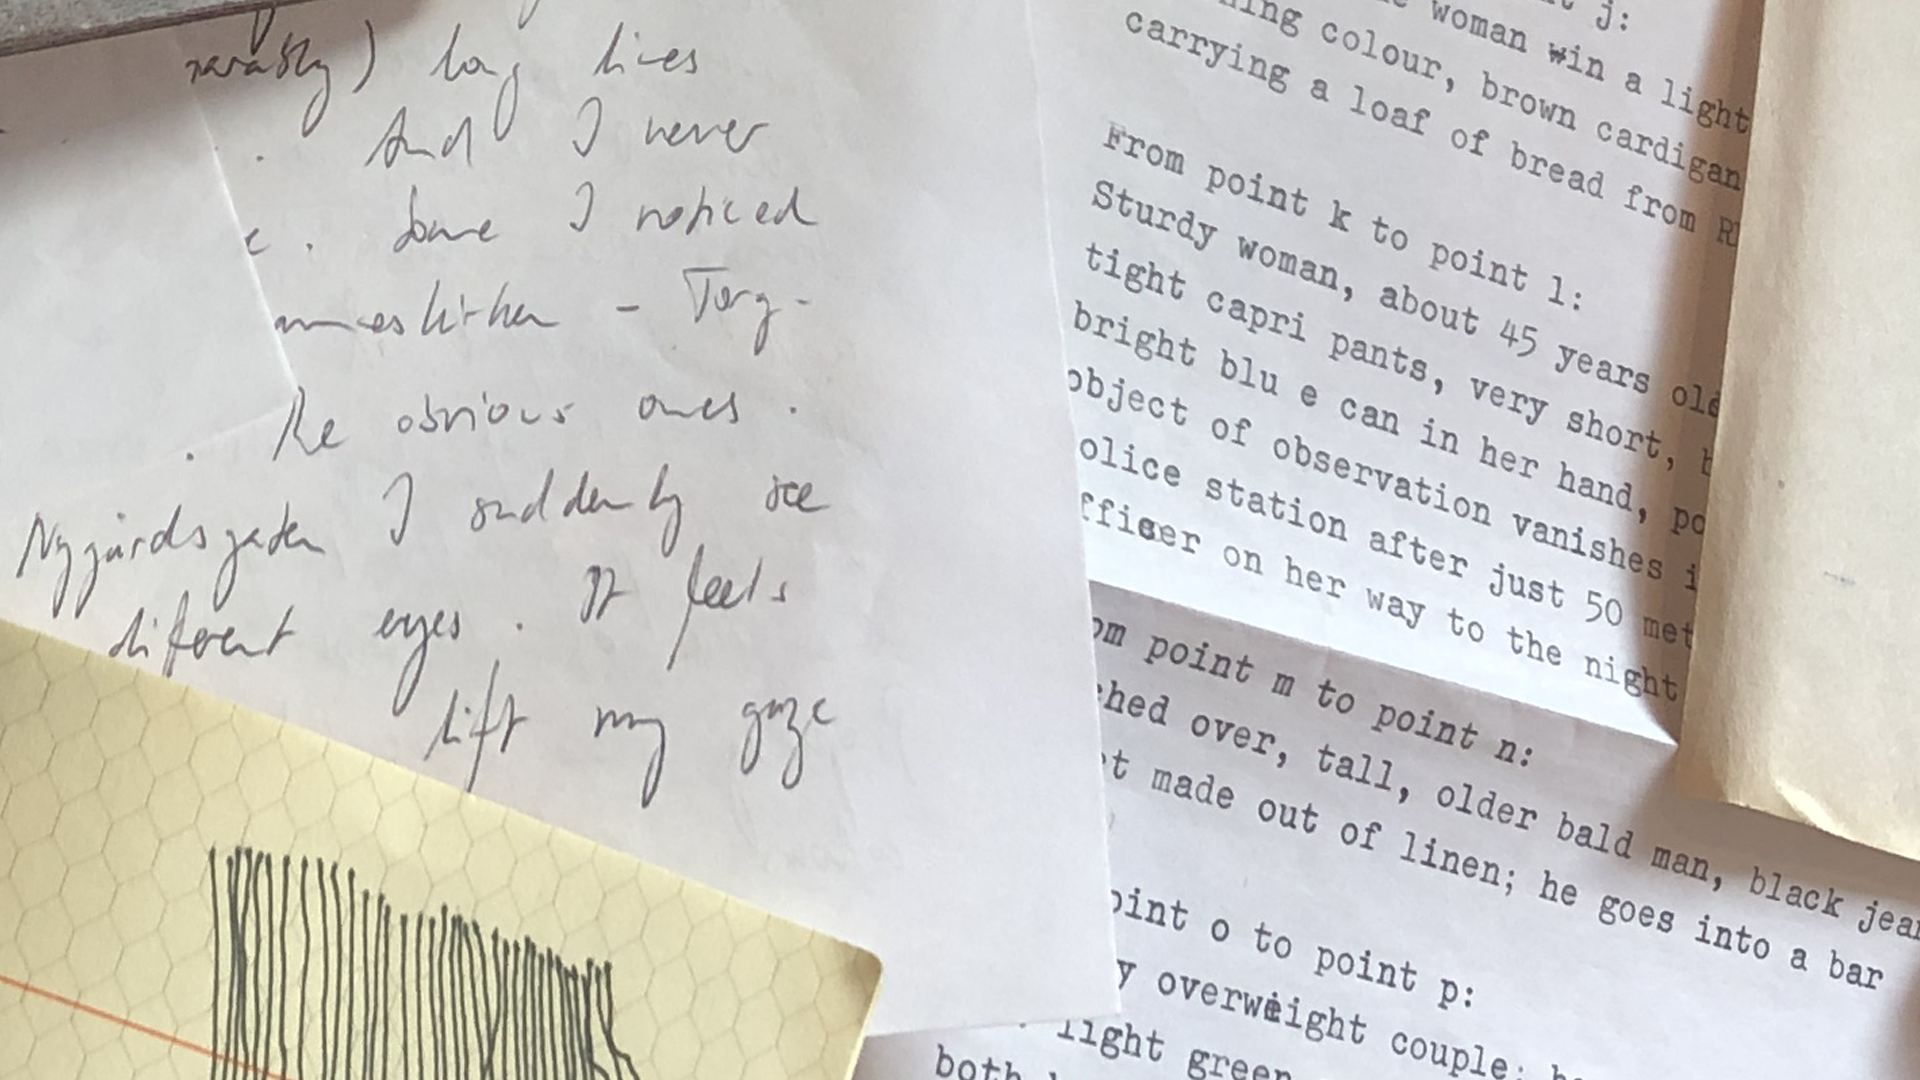 ) long lives
. And I never
. Some I noticed
- Torg-
. The obvious ones.
Nygårdsgaten I suddenly see
different eyes. It feels
lift my gaze
j:
woman win a light
colour, brown cardigan
carrying a loaf of bread from
From point k to point l:
Sturdy woman, about 45 years old
tight capri pants, very short,
bright blu e can in her hand, po
object of observation vanishes i
olice station after just 50 met
fficer on her way to the night
om point m to point n:
hed over, tall, older bald man, black jean
t made out of linen; he goes into a bar
oint o to point p:
y overweight couple;
light green
both